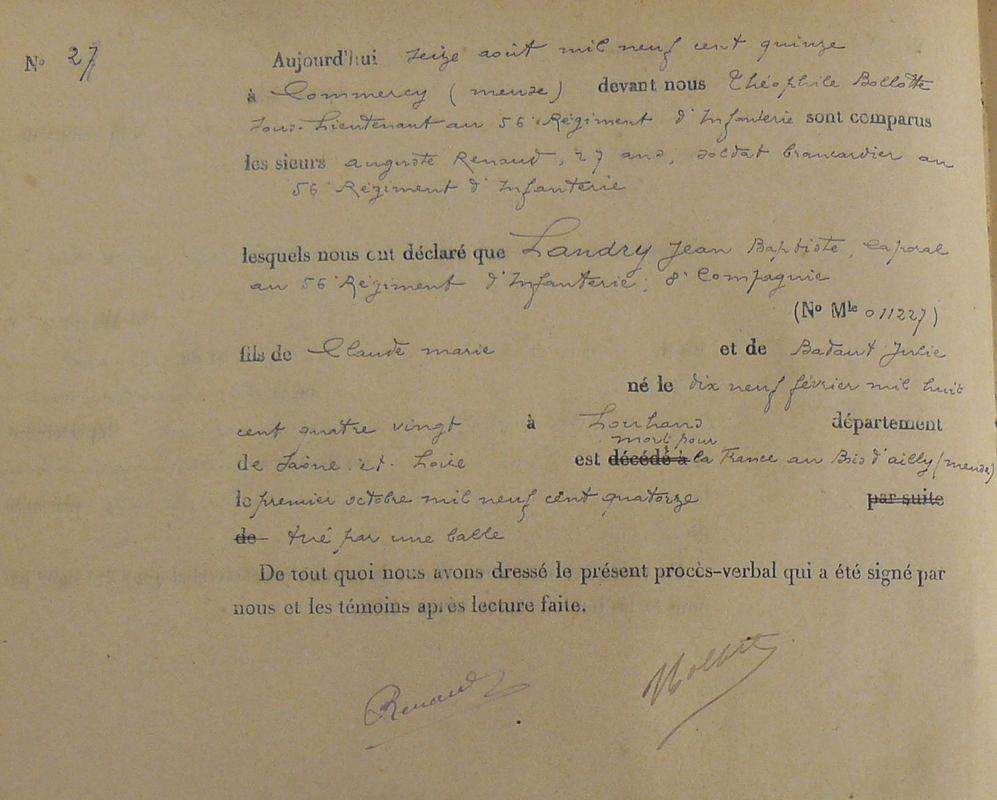 N° 27
Aujourd'hui seize août mil neuf cent quinze
à Commercy (meuse) devant nous Théophile Bollotte
Sous-Lieutenant au 56 Régiment d'Infanterie sont comparus
les sieurs auguste Renaud, 27 ans, soldat brancardier au
56 Régiment d'Infanterie
lesquels nous ont déclaré que Landry Jean Baptiste, Caporal
au 56 Régiment d'Infanterie, 8 Compagnie
(No Mle 011227)
fils de Claude marie et de Badaut Julie
né le dix neuf février mil huit
cent quatre vingt à Louhans département
mort pour
de Saône et Loire est décédé à la France au Bois d'ailly (meuse)
le premier octobre mil neuf cent quatorze par suite
de tué par une balle
De tout quoi nous avons dressé le présent procès-verbal qui a été signé par
nous et les témoins après lecture faite.
Renaud